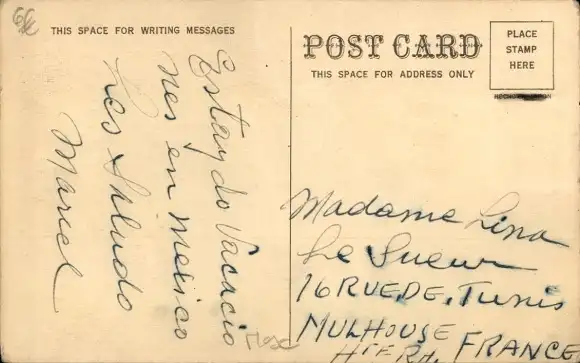 THIS SPACE FOR WRITING MESSAGES
Estay do Vacacio
nes en Mexico
Les Saludo
Marcel
POST CARD
THIS SPACE FOR ADDRESS ONLY
PLACE
STAMP
HERE
Madame Lina
Le Sueur
16 RUE DE. Tunis
MULHOUSE
HTE RH. FRANCE